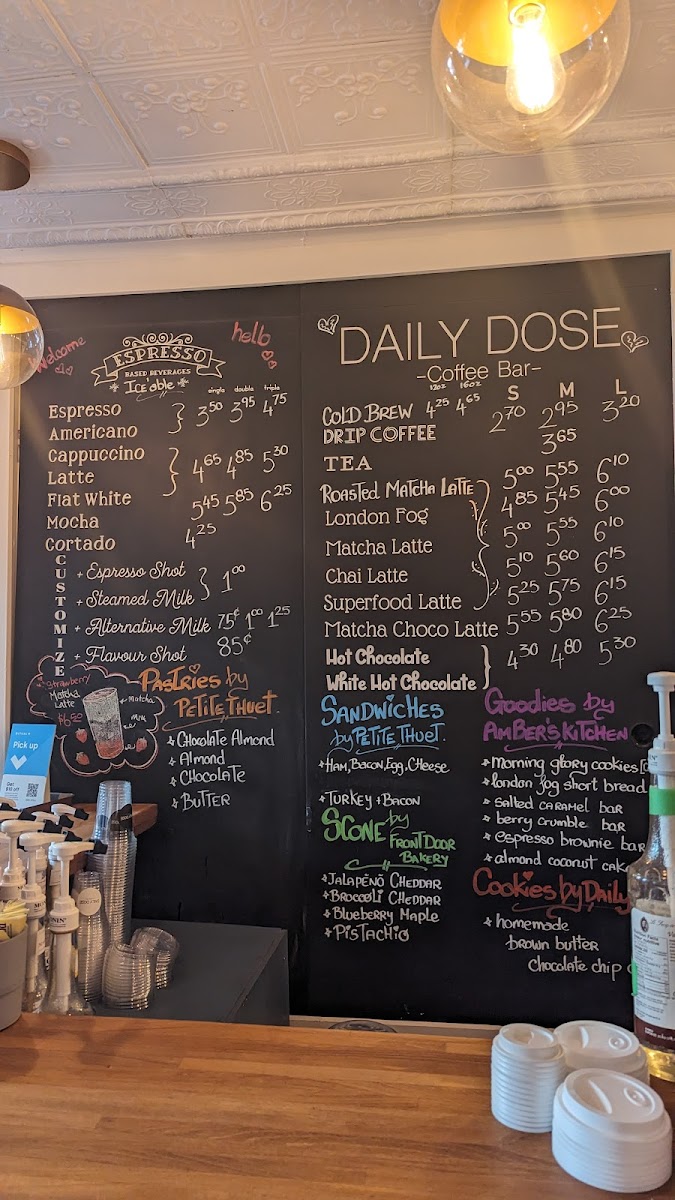 Welcome
hello
ESPRESSO
BASED BEVERAGES
Ice'able
single double triple
Espresso
Americano
3.50 3.95 4.75
Cappuccino
Latte
Flat White
4.65 4.85 5.30
Mocha
5.45 5.85 6.25
Cortado
4.25
CUSTOMIZE
+ Espresso Shot
+ Steamed Milk
1.00
+ Alternative Milk 75¢ 1.00 1.25
+ Flavour Shot 85¢
Strawberry
Matcha
Latte
$6.50
Matcha
Milk
Pastries by
Petite Thuet
Chocolate Almond
Almond
Chocolate
Butter
Pick up
DAILY DOSE
-Coffee Bar-
12oz 16oz
S M L
COLD BREW 4.25 4.65
DRIP COFFEE 2.70 2.95 3.20
TEA 3.65
Roasted Matcha Latte 5.00 5.55 6.10
London Fog 4.85 5.45 6.00
Matcha Latte 5.00 5.55 6.10
Chai Latte 5.10 5.60 6.15
Superfood Latte 5.25 5.75 6.15
Matcha Choco Latte 5.55 5.80 6.25
Hot Chocolate
White Hot Chocolate
4.30 4.80 5.30
Sandwiches
by Petite Thuet
Ham, Bacon, Egg, Cheese
Turkey + Bacon
Scone by
Front Door
Bakery
Jalapeño Cheddar
Broccoli Cheddar
Blueberry Maple
Pistachio
Goodies by
Amber's Kitchen
morning glory cookies
london fog short bread
salted caramel bar
berry crumble bar
espresso brownie bar
almond coconut cake
Cookies by Daily
homemade
brown butter
chocolate chip